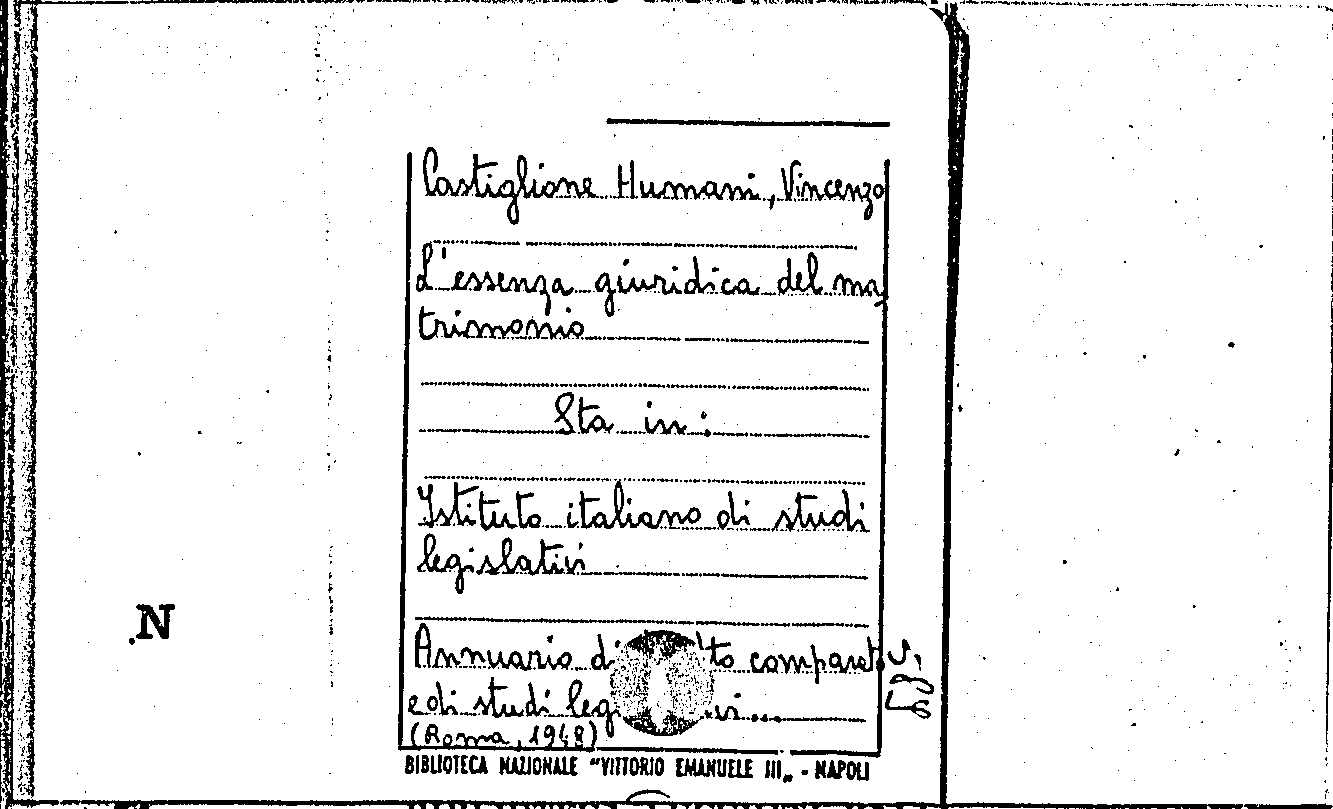 Castiglione Humani, Vincenzo
L'essenza giuridica del ma
trimonio
Sta in:
Istituto italiano di studi
legislativi
N
Annuario di to comparat.
e di studi leg vi...
(Roma, 1948)
BIBLIOTECA NAZIONALE "VITTORIO EMANUELE III„ - NAPOLI